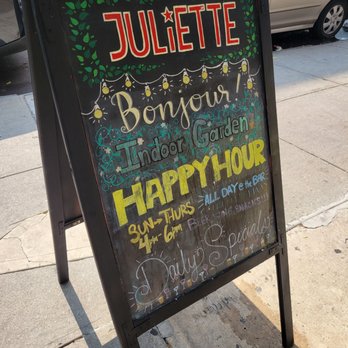 JULIETTE
Bonjour!
Indoor Garden
HAPPY HOUR
SUN-THURS ALL DAY @ the BAR
4PM-6PM
Daily Specials